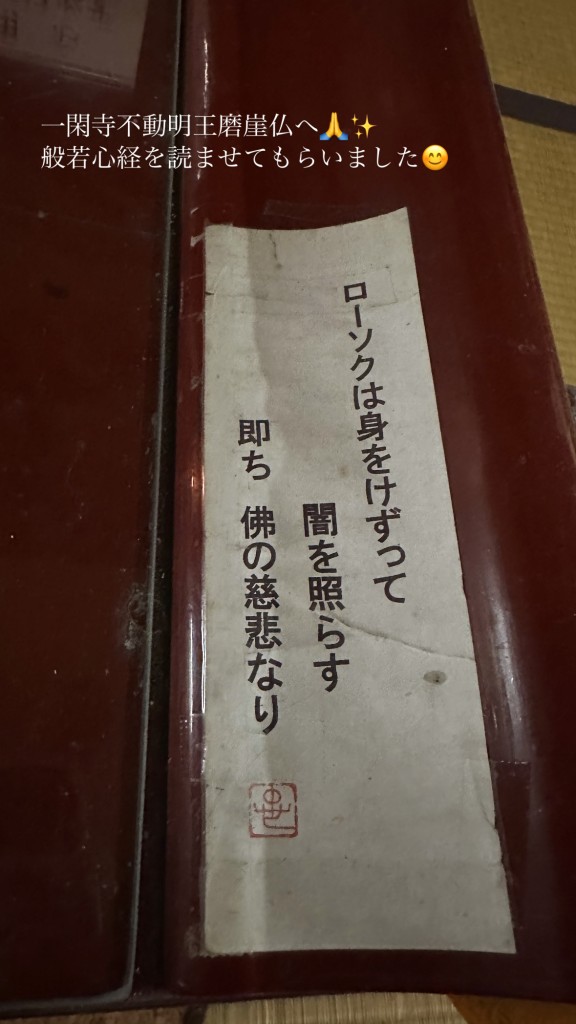 一閑寺不動明王磨崖仏へ🙏✨
般若心経を読ませてもらいました😊
ローソクは身をけずって
闇を照らす
即ち 佛の慈悲なり